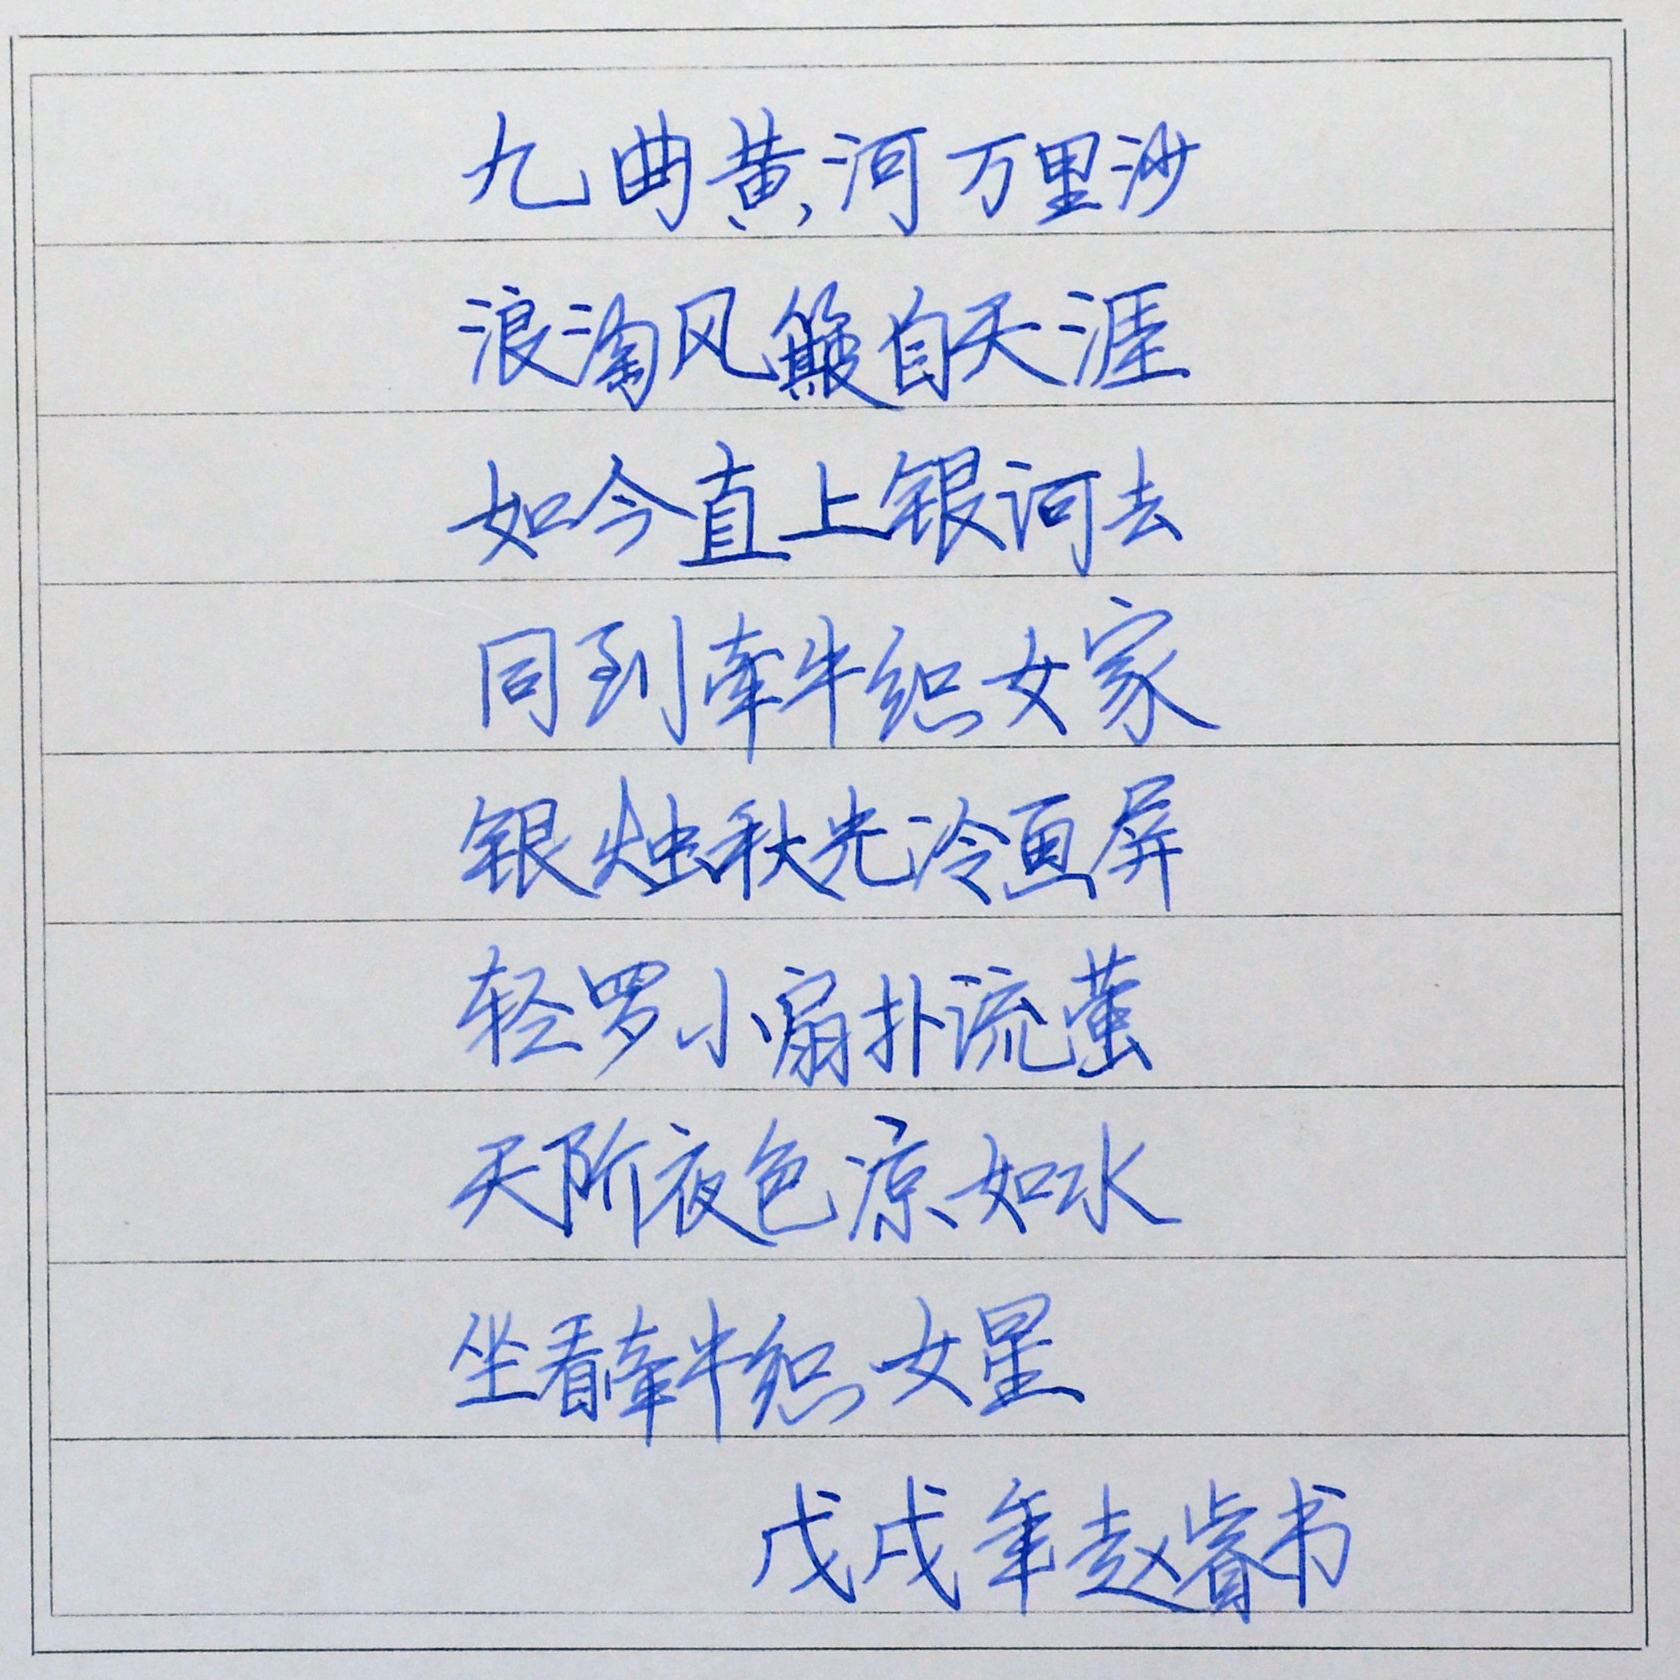 九曲黄河万里沙
浪淘风簸自天涯
如今直上银河去
同到牵牛织女家
银烛秋光冷画屏
轻罗小扇扑流萤
天阶夜色凉如水
坐看牵牛织女星
戊戌年赵睿书